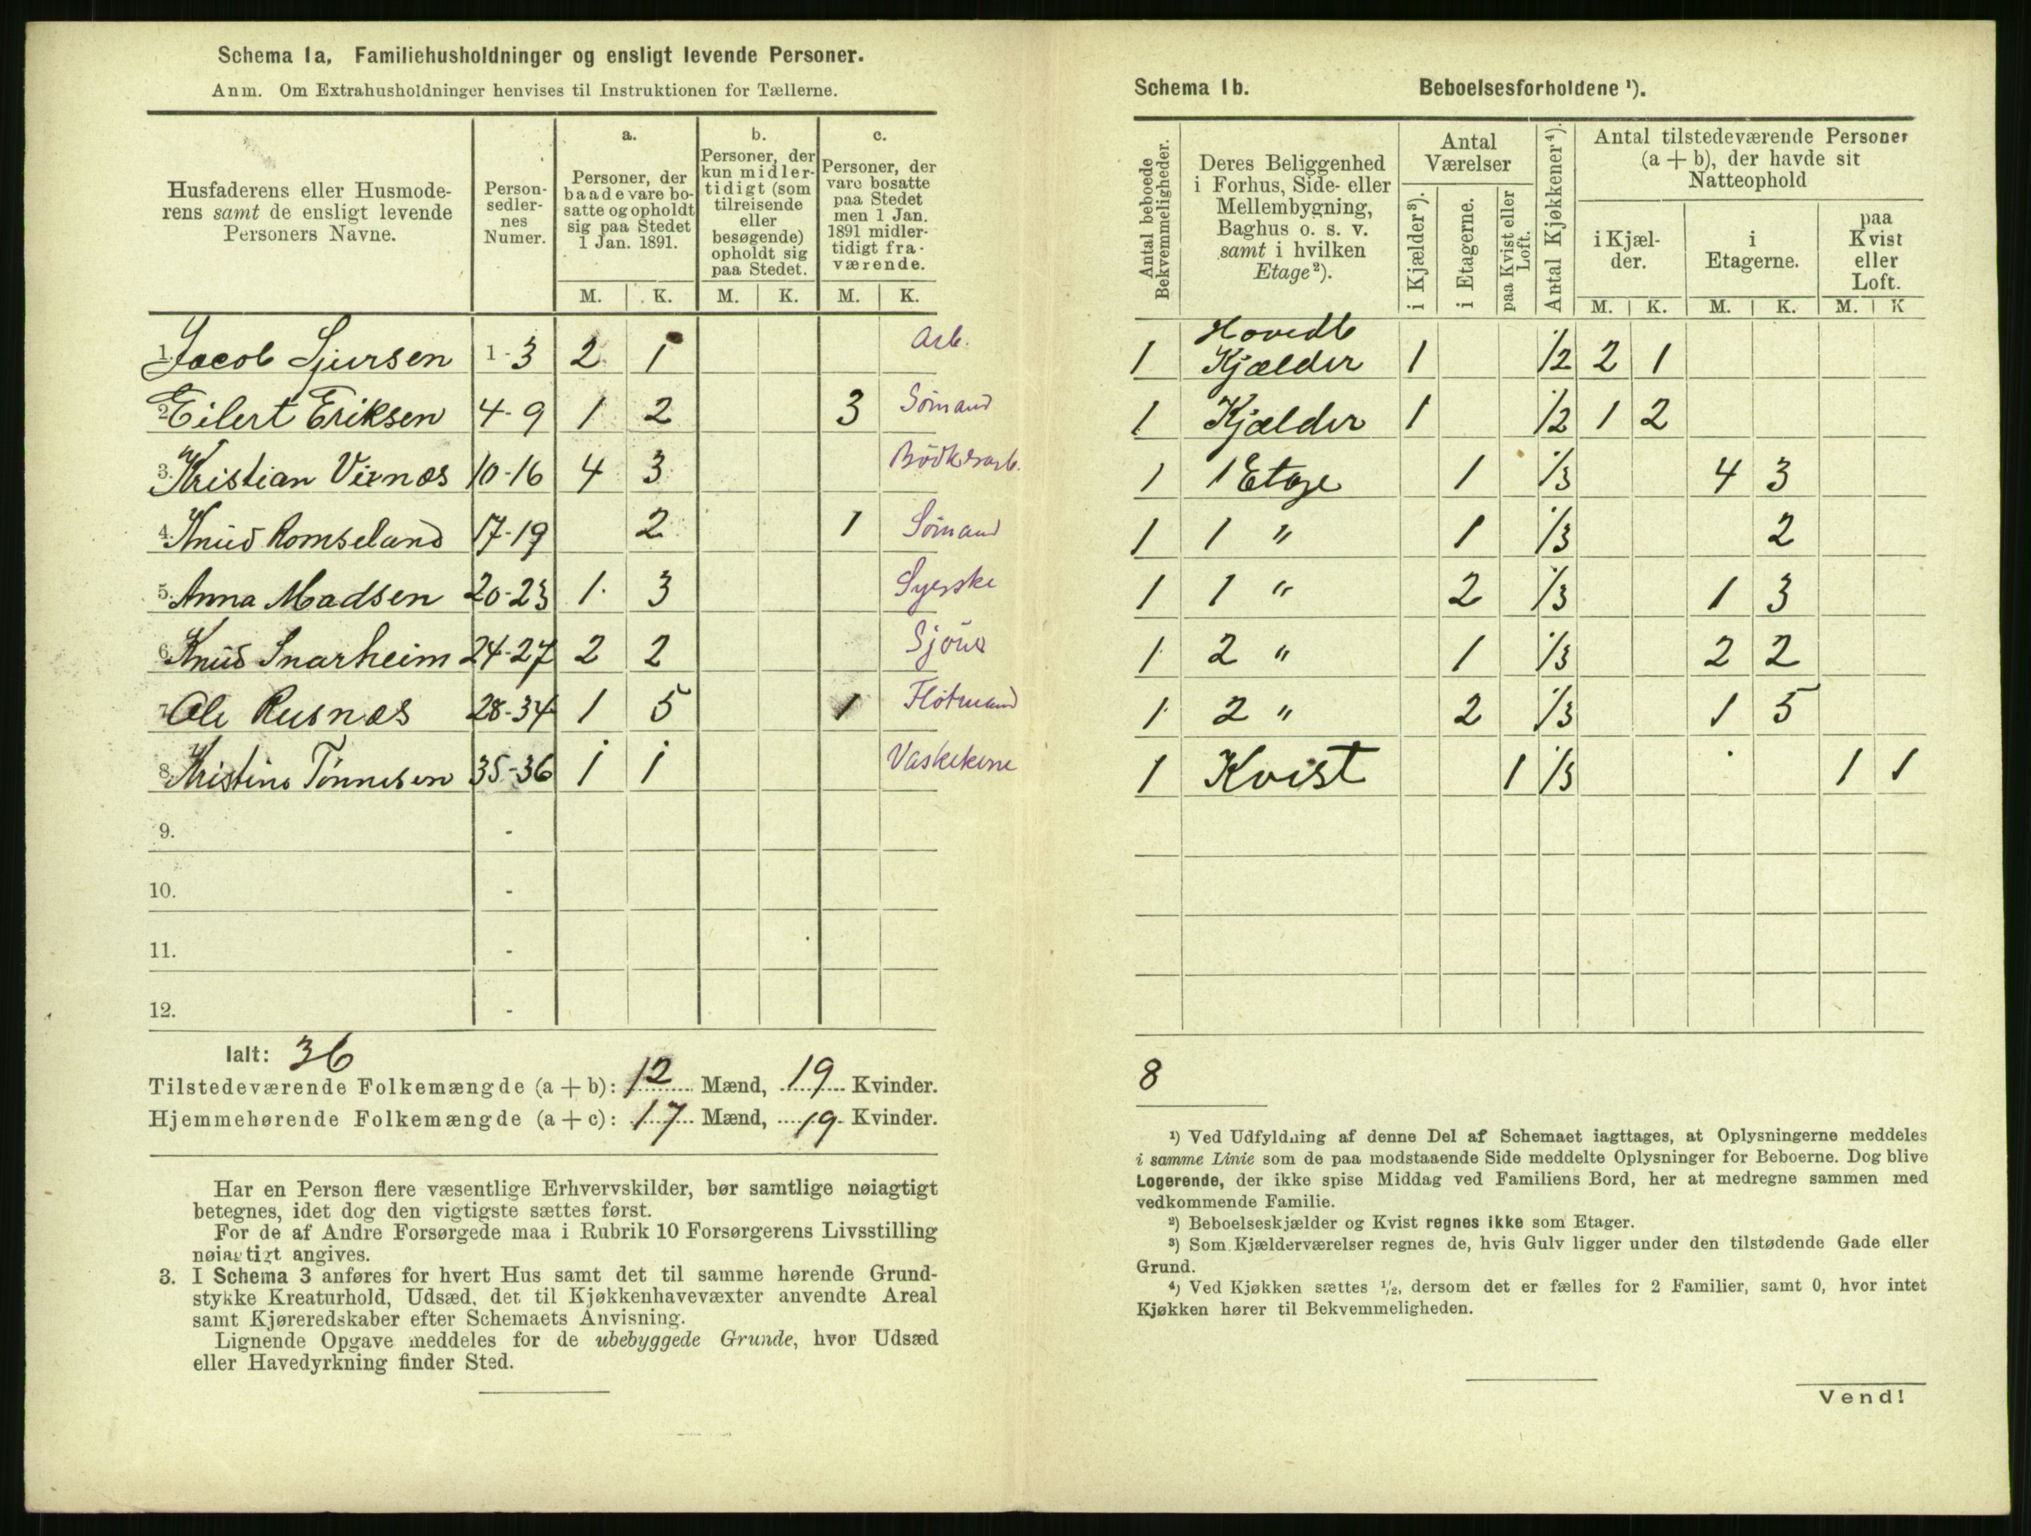 Schema 1a. Familiehusholdninger og ensligt levende Personer.
Anm. Om Extrahusholdninger henvises til Instruktionen for Tællerne.
Husfaderens eller Husmode-
rens samt de ensligt levende
Personers Navne.
Person-
sedler-
nes
Numer.
a.
Personer, der
baade vare bo-
satte og opholdt
sig paa Stedet
1 Jan. 1891.
b.
Personer, der
kun midler-
tidigt (som
tilreisende
eller
besøgende)
opholdt sig
paa Stedet.
c.
Personer, der
vare bosatte
paa Stedet
men 1 Jan.
1891 midler-
tidigt fra-
værende.
M. K. M. K. M. K.
1. Jacob Sjursen 1-3 2 1 Arb.
2. Eilert Eriksen 4-9 1 2 3 Sömand
3. Kristian Vixnæs 10-16 4 3 Bödkerarb.
4. Knud Romseland 17-19 2 1 Sömand
5. Anna Madsen 20-23 1 3 Syerske
6. Knud Snarheim 24-27 2 2 Sjöus
7. Ole Rusnæs 28-34 1 5 1 Flötmand
8. Kristine Tönnesen 35-36 1 1 Vaskekone
9. -
10. -
11. -
12. -
Ialt: 36
Tilstedeværende Folkemængde (a + b): 12 Mænd, 19 Kvinder.
Hjemmehørende Folkemængde (a + c): 17 Mænd, 19 Kvinder.
Har en Person flere væsentlige Erhvervskilder, bør samtlige nøiagtigt
betegnes, idet dog den vigtigste sættes først.
For de af Andre Forsørgede maa i Rubrik 10 Forsørgerens Livsstilling
nøiagtigt angives.
3. I Schema 3 anføres for hvert Hus samt det til samme hørende Grund-
stykke Kreaturhold, Udsæd, det til Kjøkkenhavevæxter anvendte Areal
samt Kjøreredskaber efter Schemaets Anvisning.
Lignende Opgave meddeles for de ubebyggede Grunde, hvor Udsæd
eller Havedyrkning finder Sted.
Schema 1b. Beboelsesforholdene ¹).
Antal beboede
Bekvemmeligheder.
Deres Beliggenhed
i Forhus, Side- eller
Mellembygning,
Baghus o. s. v.
samt i hvilken
Etage ²).
Antal
Værelser
i Kjælder ³).
i Etagerne.
paa Kvist eller
Loft.
Antal Kjøkkener ⁴).
Antal tilstedeværende Personer
(a + b), der havde sit
Natteophold
i Kjæl-
der.
i
Etagerne.
paa
Kvist
eller
Loft.
M. K. M. K. M. K
Hovedb
1 Kjælder 1 1/2 2 1
1 Kjælder 1 1/2 1 2
1 1 Etage 1 1/3 4 3
1 1 " 1 1/3 2
1 1 " 2 1/3 1 3
1 2 " 1 1/3 2 2
1 2 " 2 1/3 1 5
1 Kvist 1 1/3 1 1
8
¹) Ved Udfyldning af denne Del af Schemaet iagttages, at Oplysningerne meddeles
i samme Linie som de paa modstaaende Side meddelte Oplysninger for Beboerne. Dog blive
Logerende, der ikke spise Middag ved Familiens Bord, her at medregne sammen med
vedkommende Familie.
²) Beboelseskjælder og Kvist regnes ikke som Etager.
³) Som Kjælderværelser regnes de, hvis Gulv ligger under den tilstødende Gade eller
Grund.
⁴) Ved Kjøkken sættes ¹/₂, dersom det er fælles for 2 Familier, samt 0, hvor intet
Kjøkken hører til Bekvemmeligheden.
Vend!